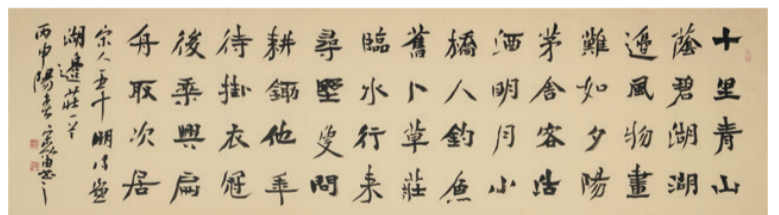 十里青山
蔭碧湖湖
邊風物畫
難如夕陽
茅舍客沽
酒明月小
橋人釣魚
舊卜草莊
臨水竹来
尋墅叟問
耕鋤他年
待掛衣冠
後乘興扁
舟取次居
宋人王十朋詩題
湖邊莊一首
丙申陽春